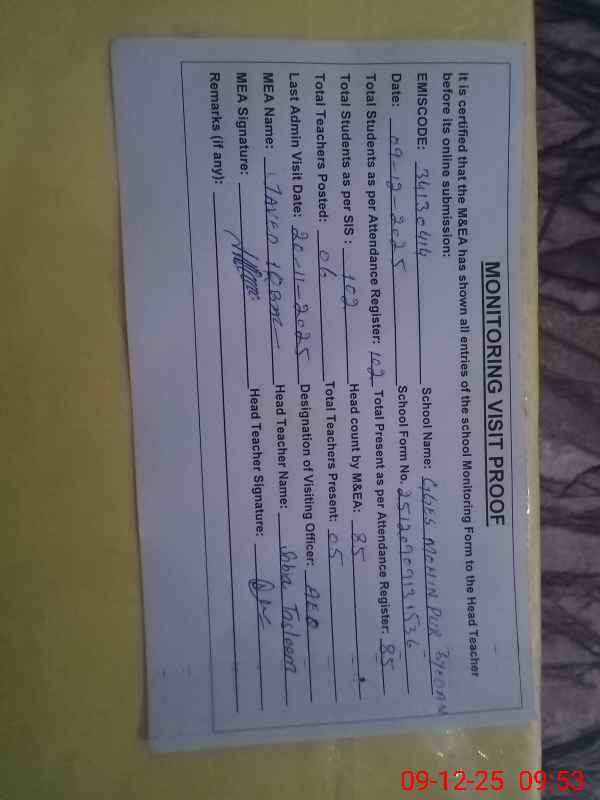 MONITORING VISIT PROOF
It is certified that the M&EA has shown all entries of the school Monitoring Form to the Head Teacher
before its online submission:
EMISCODE: 34130414 School Name: GGES MOHIN PUR
Date: 09-12-2025 School Form No. 25120909131536
Total Students as per Attendance Register: 102 Total Present as per Attendance Register: 85
Total Students as per SIS : 102 Head count by M&EA: 85
Total Teachers Posted: 06 Total Teachers Present: 05
Last Admin Visit Date: 20-11-2025 Designation of Visiting Officer: AEO
MEA Name: JAVED IQBAL Head Teacher Name: Siba Tasleem
MEA Signature: Head Teacher Signature:
Remarks (if any):
09-12-25 09:53